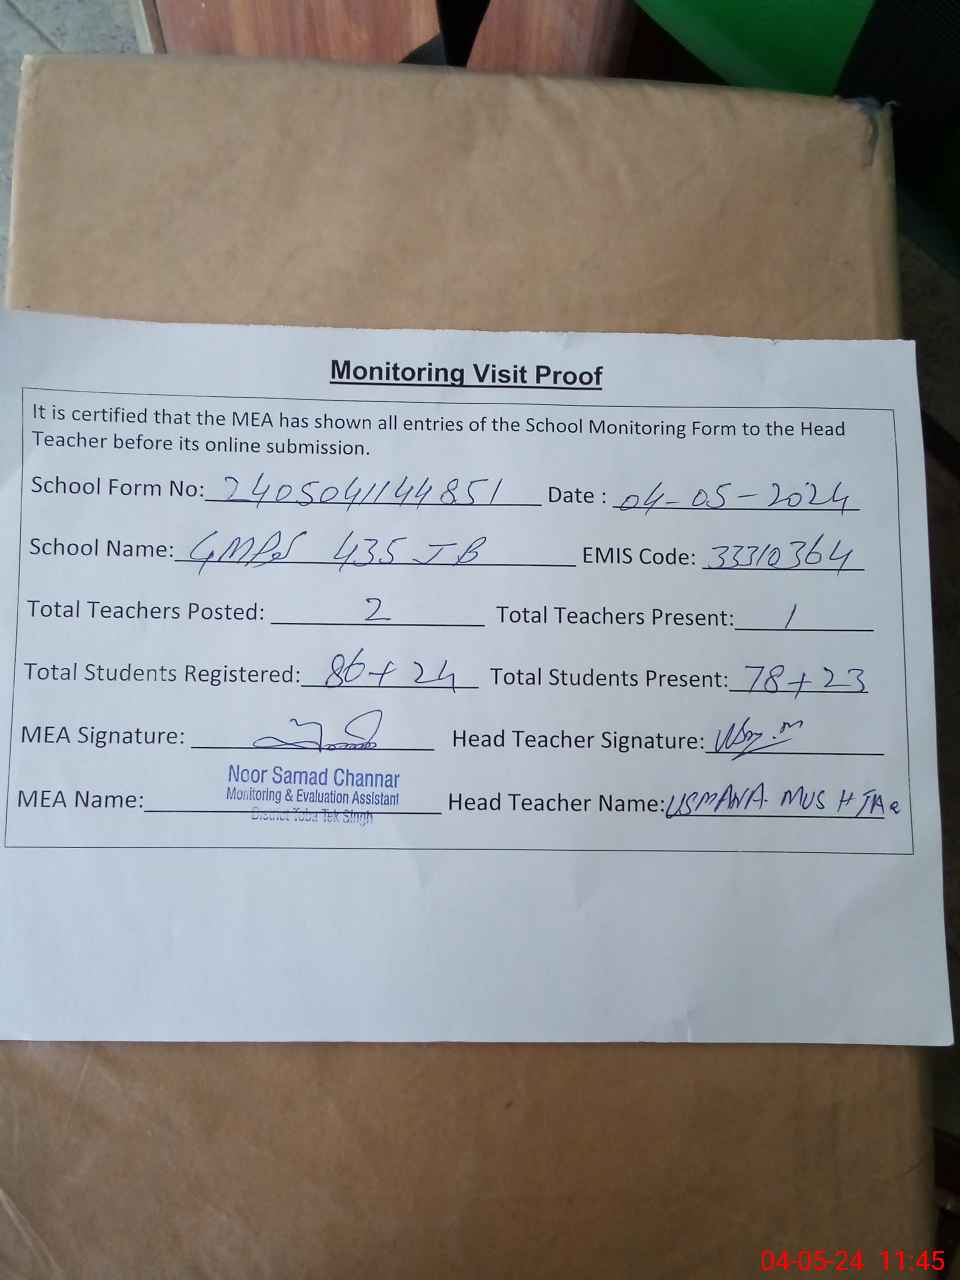 Monitoring Visit Proof
It is certified that the MEA has shown all entries of the School Monitoring Form to the Head
Teacher before its online submission.
School Form No: 2405041144851 Date : 04-05-2024
School Name: GMPS 435 JB EMIS Code: 33310364
Total Teachers Posted: 2 Total Teachers Present: 1
Total Students Registered: 86+24 Total Students Present: 78+23
MEA Signature: Head Teacher Signature:
Noor Samad Channar
Monitoring & Evaluation Assistant
District Toba Tek Singh
MEA Name: Head Teacher Name: USMANA. MUSHTAQ
04-05-24 11:45